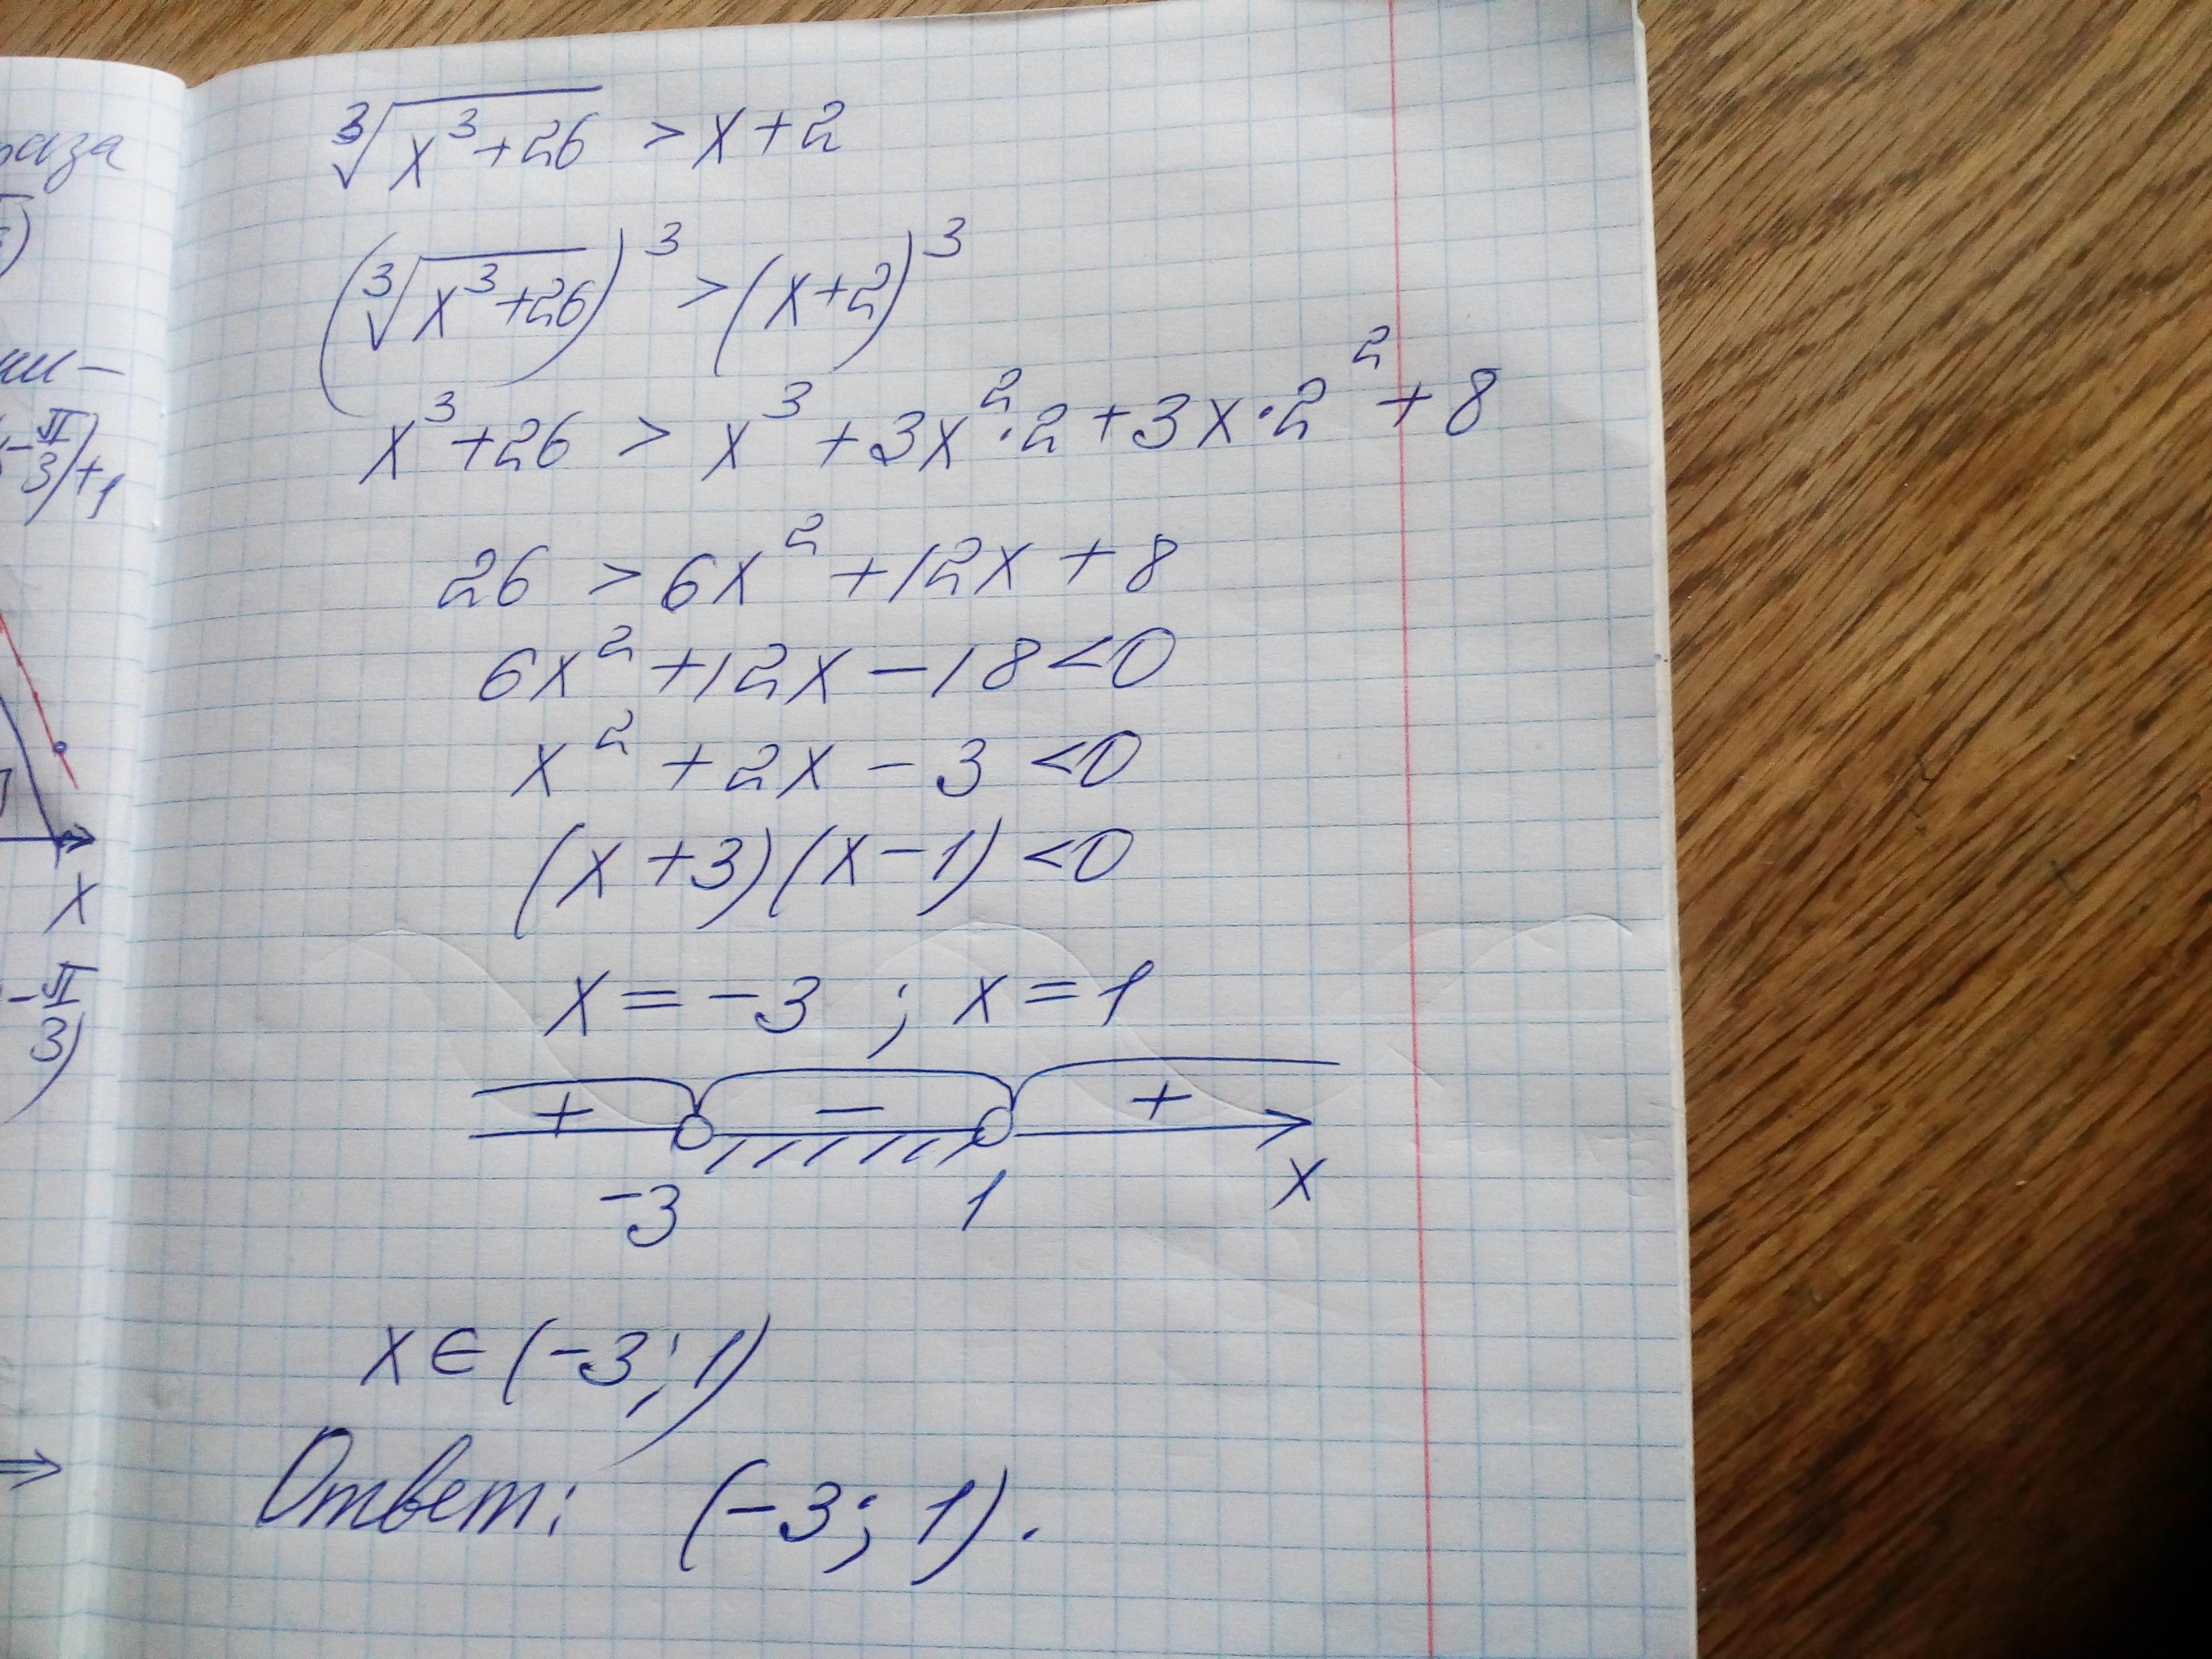 раза
∛(x³+26) > x+2
(∛(x³+26))³ > (x+2)³
x³+26 > x³+3x²·2+3x·2²+8
-π/3)+1
26 > 6x²+12x+8
6x²+12x-18<0
x²+2x-3<0
(x+3)(x-1)<0
x
-π/3)
x=-3 ; x=1
+ - +
-3 1 x
x∈(-3;1)
Ответ: (-3; 1).